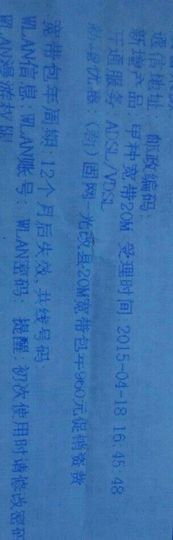 通信地址: 邮政编码:
新增产品: 甲种宽带20M 受理时间 2015-04-18 16:45:48
开通服务 ADSL/VDSL
(衢)固网-光改县20M宽带包年960元促销资费
宽带包年周期:12个月后失效,共线号码:
WLAN信息:WLAN账号: WLAN密码: 提醒:初次使用时请修改密码
WLAN漫游权限: